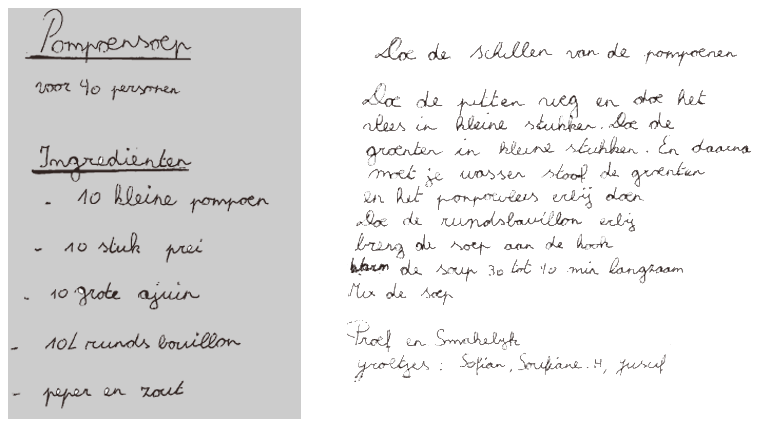 Pompoensoep
voor 40 personen
Ingrediënten
- 10 kleine pompoen
- 10 stuk prei
- 10 grote ajuin
- 10L runds bouillon
- peper en zout
Doe de schillen van de pompoenen
Doe de pitten weg en doe het
vlees in kleine stukken. Doe de
groenten in kleine stukken. En daarna
moet je wassen stoof de groenten
en het erbij doen
Doe de rundsbouillon erbij
breng de soep aan de kook
de soep 30 tot 40 min langzaam
Mix de soep
Proef en Smakelijk
groetjes : Sofian, Soufiane.H, Jusuf